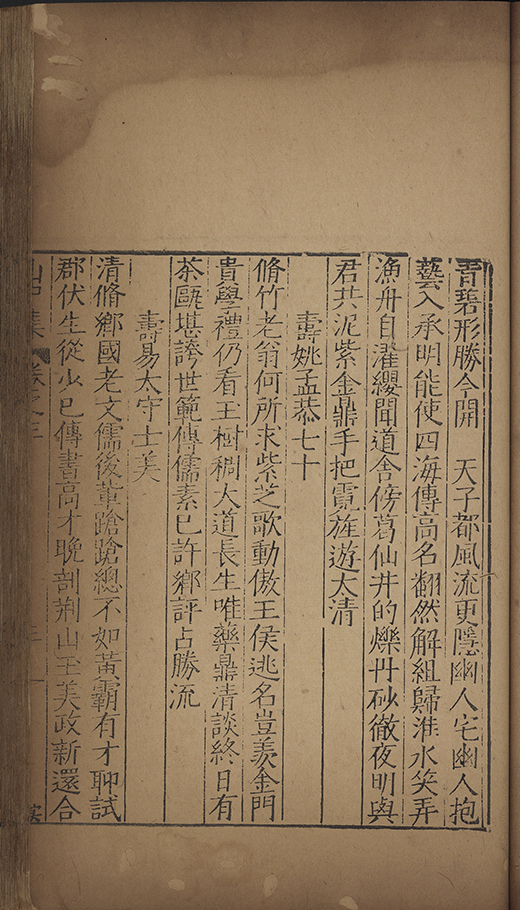 青碧形勝今開　天子都風流更隱幽人宅幽人抱
藝入承明能使四海傳高名翻然解組歸淮水笑弄
漁舟自濯纓聞道舍傍葛仙井的爍丹砂徹夜明與
君共泥紫金鼎手把霓旌遊太清
壽姚孟恭七十
脩竹老翁何所求紫芝歌動傲王侯逃名豈羨金門
貴學禮仍看玉樹稠大道長生唯藥鼎清談終日有
茶甌堪誇世範傳儒素已許鄉評占勝流
壽易太守士美
清脩鄉國老文儒後輩蹌蹌總不如黃霸有才聊試
郡伏生從少已傳書高才晚剖荆山玉美政新還合
集